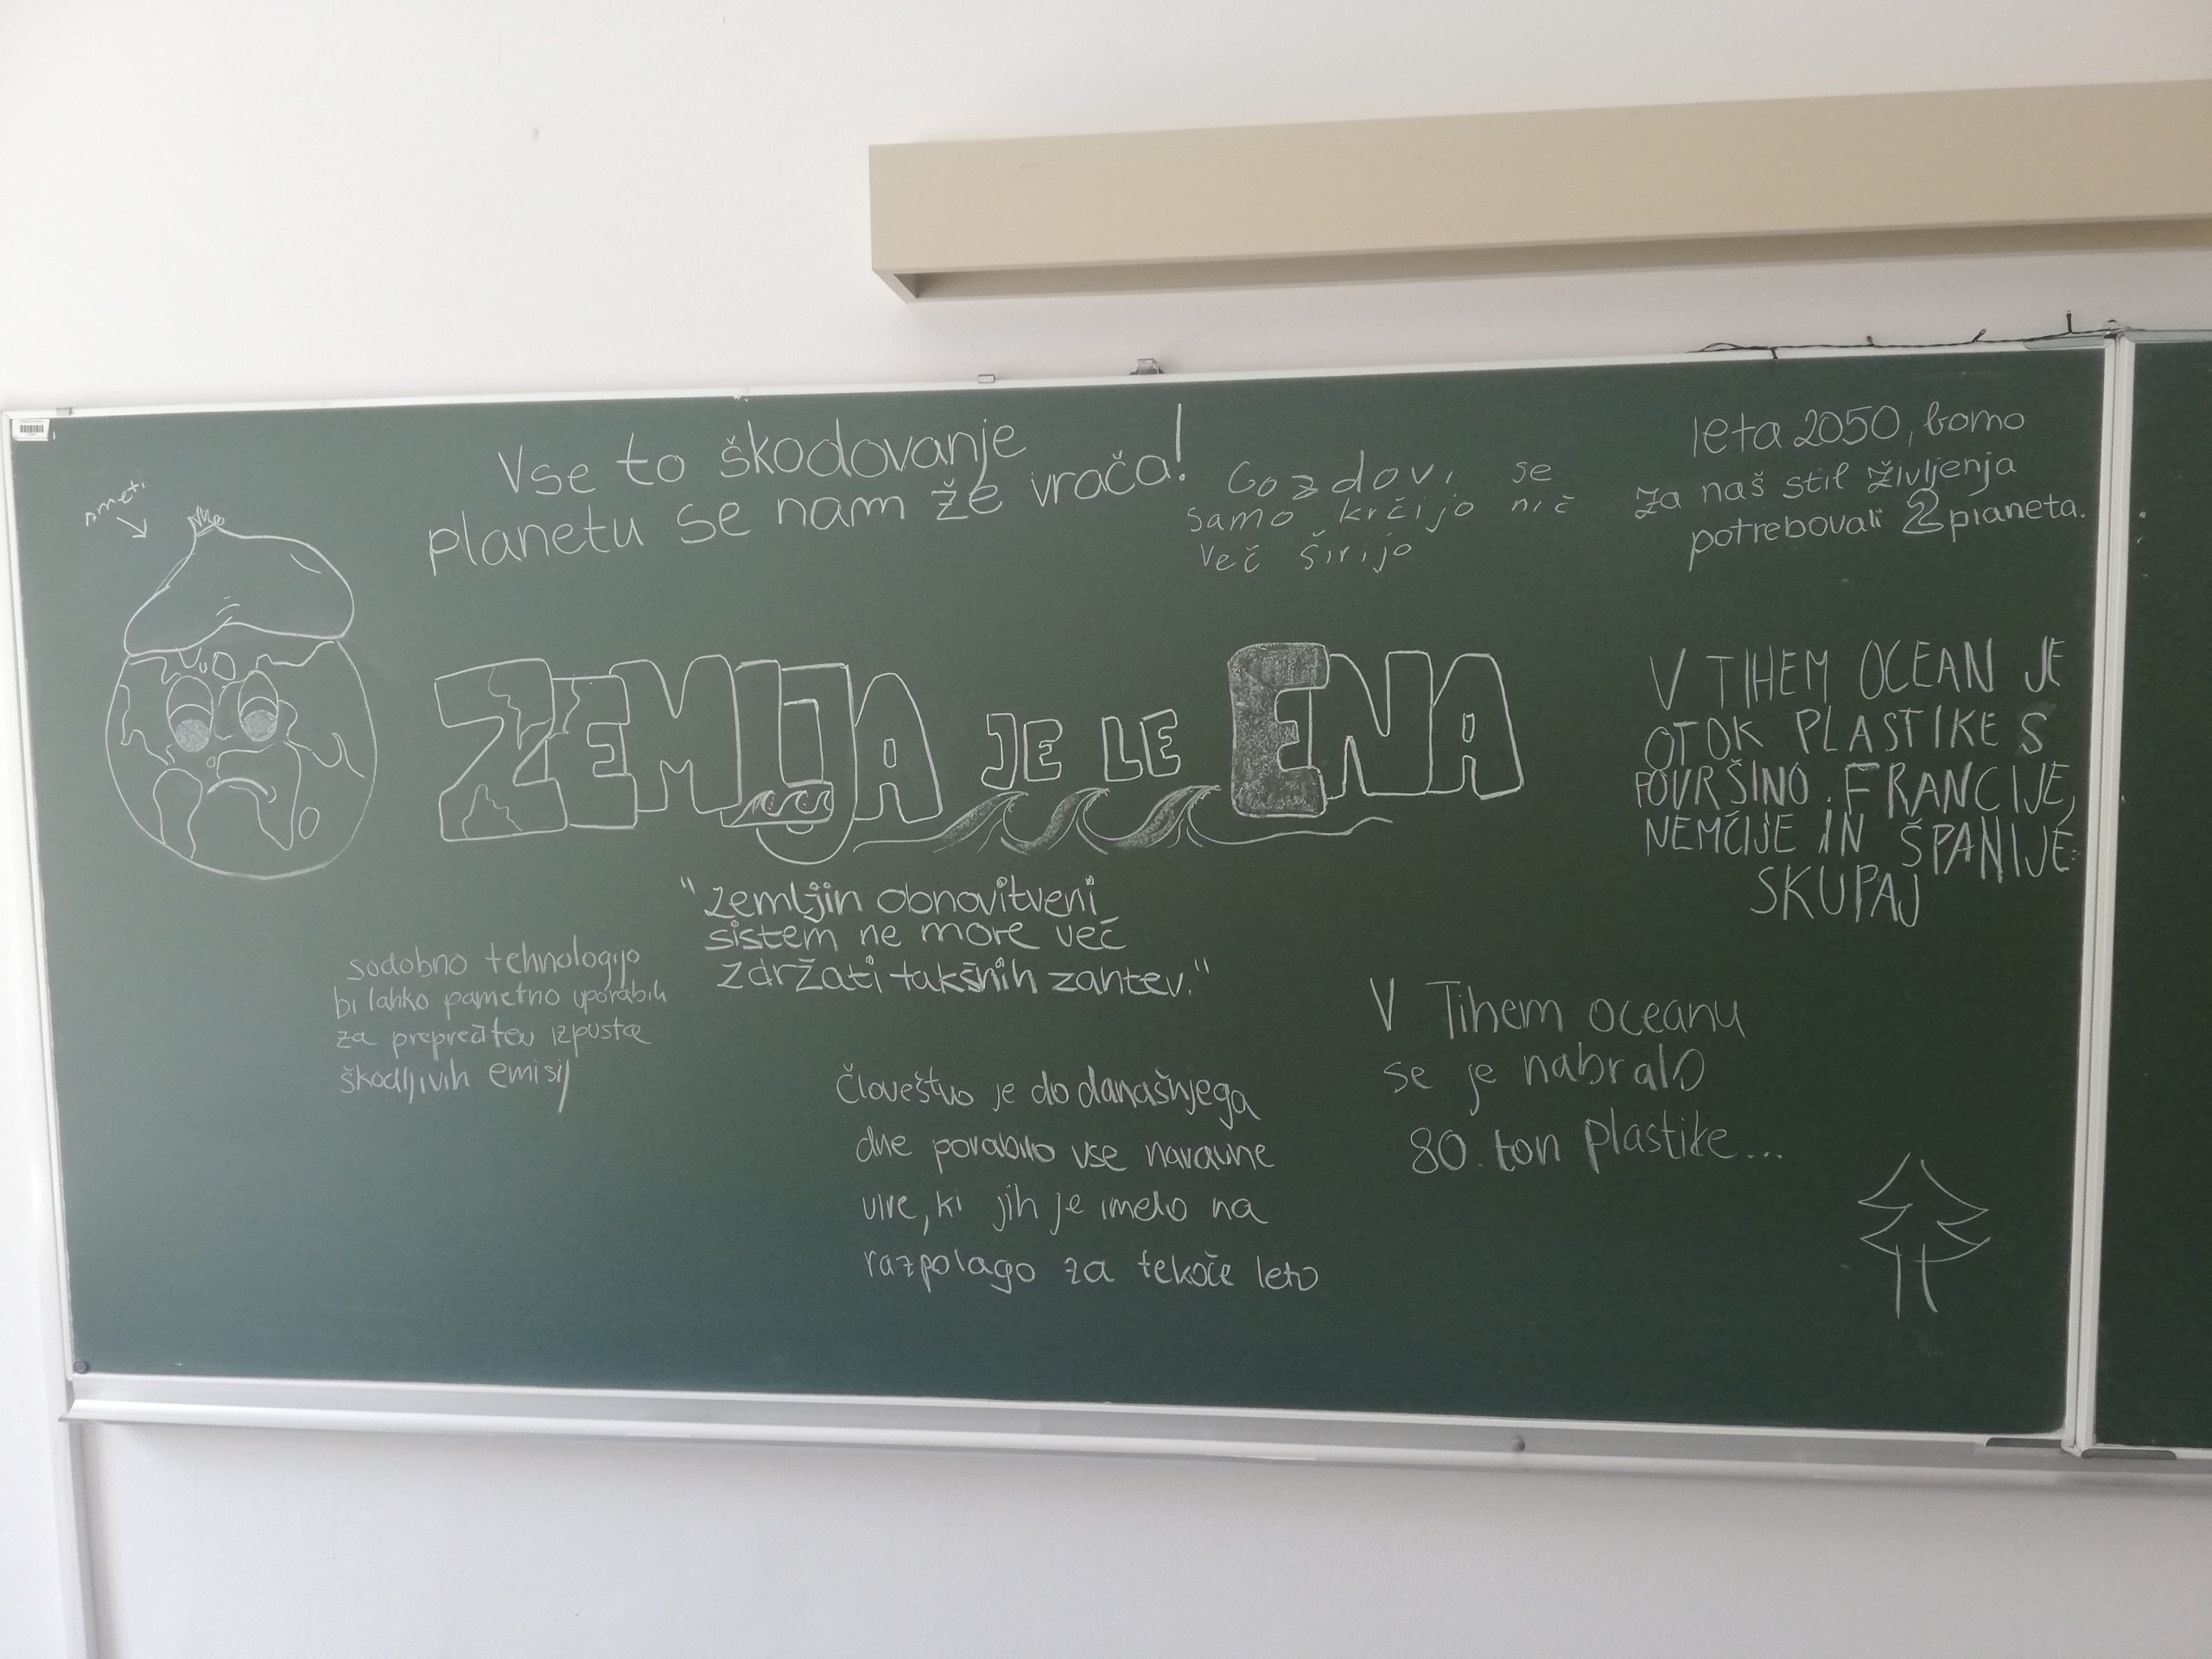 smeti
Vse to škodovanje
planetu se nam že vrača!
Gozdovi se
samo krčijo nič
več širijo
leta 2050, bomo
za naš stil življenja
potrebovali 2 planeta.
ZEMLJA JE LE ENA
V TIHEM OCEAN JE
OTOK PLASTIKE S
POVRŠINO FRANCIJE,
NEMČIJE IN ŠPANIJE
SKUPAJ
"zemljin obnovitveni
sistem ne more več
zdržati takšnih zahtev."
sodobno tehnologijo
bi lahko pametno uporabili
za preprečitev izpusta
škodljivih emisij
Človeštvo je do današnjega
dne porabilo vse naravne
vire, ki jih je imelo na
razpolago za tekoče leto
V Tihem oceanu
se je nabralo
80. ton plastike...